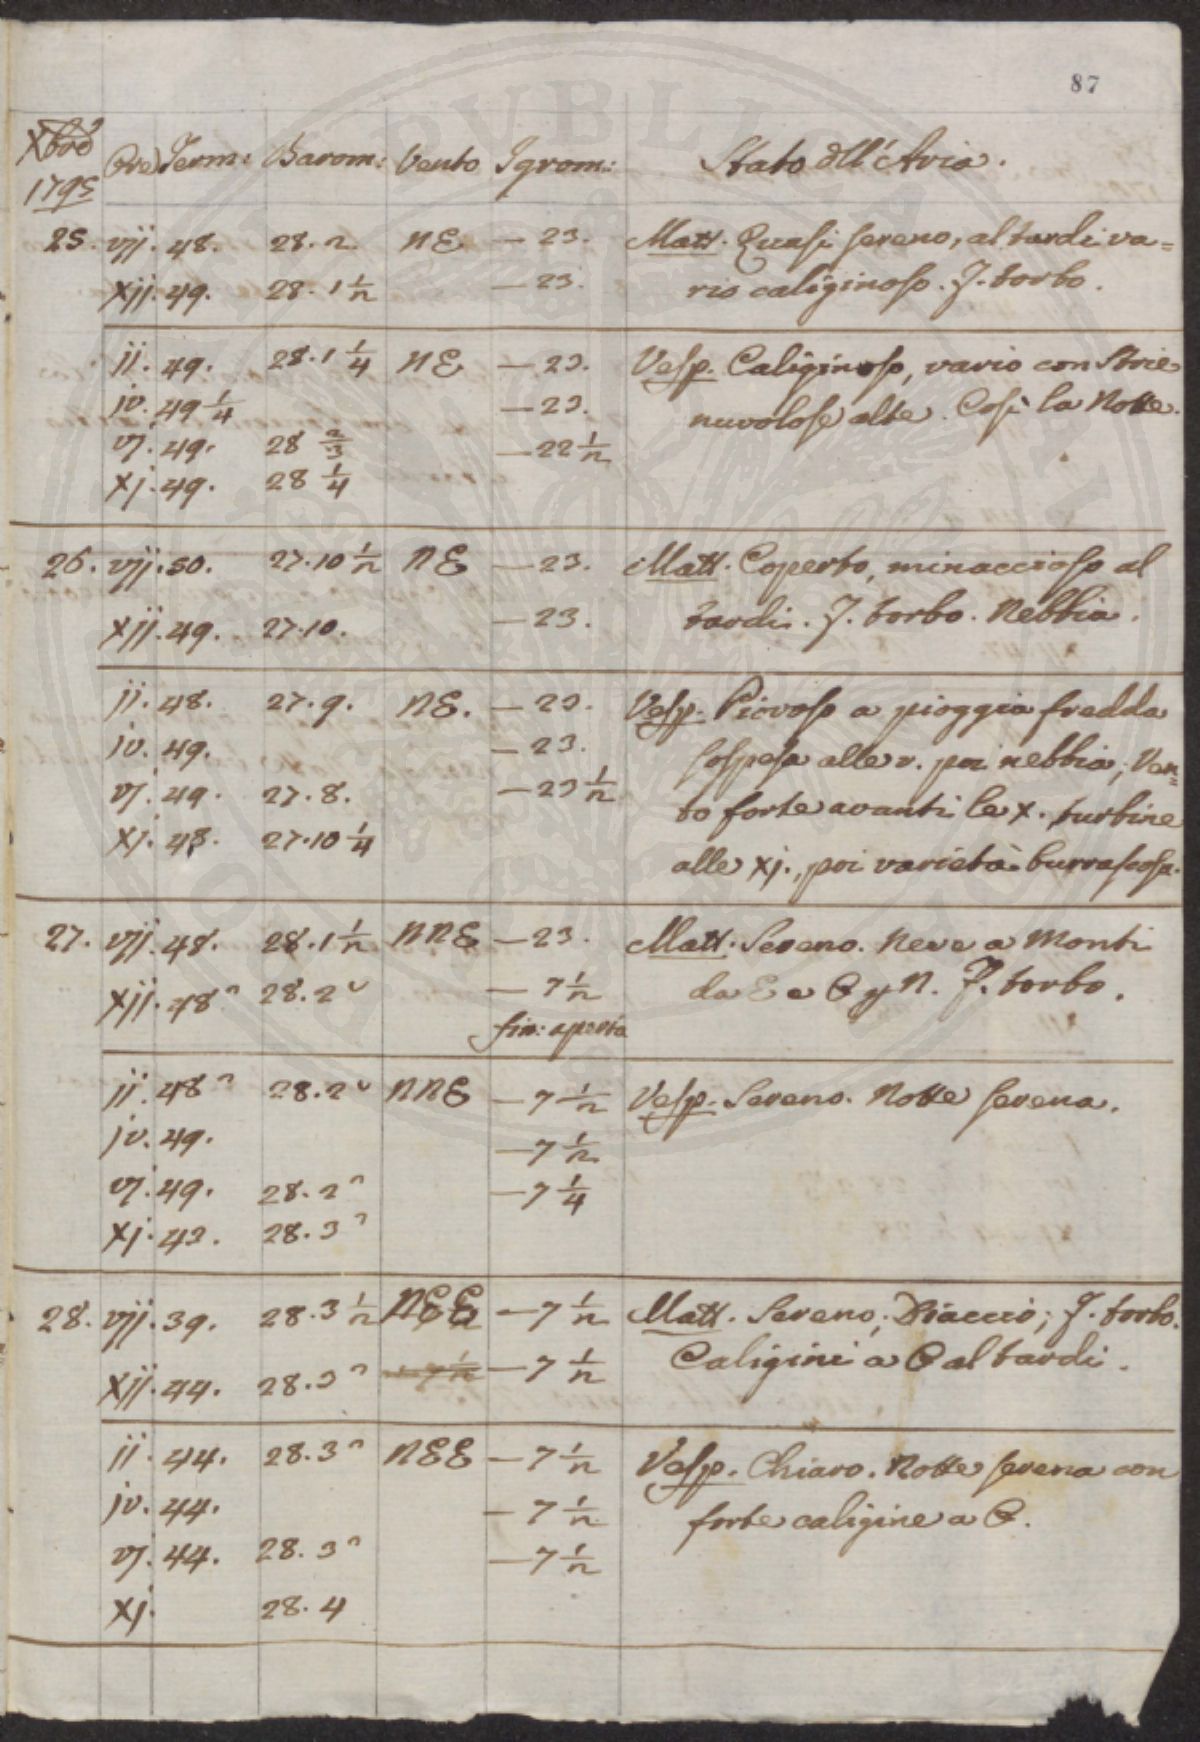 87
Xbre
1795
Ore Term: Barom: Vento Igrom: Stato dll'Aria.
25. vij. 48. 28. 2. NE — 23. Matt. Quasi sereno, al tardi va=
xij. 49. 28. 1 1/2 — 23. rio caliginoso. F. torbo.
ij. 49. 28. 1 1/4 NE — 23. Vesp. Caliginoso, vario con Strie
iv. 49 1/4 — 23. nuvolose alte. Così la Notte.
vj. 49. 28 2/3 — 22 1/2
xj. 49. 28 1/4
26. vij. 50. 27. 10 1/2 NE — 23. Matt. Coperto, minaccioso al
xij. 49. 27. 10. — 23. tardi. F. torbo. Nebbia.
ij. 48. 27. 9. NE. — 23. Vesp. Piovoso a pioggia fredda
iv. 49. — 23. sospesa alle v. poi nebbia; Ven=
vj. 49. 27. 8. — 23 1/2 to forte avanti le x. turbine
xj. 48. 27. 10 1/4 alle xj., poi varietà burrascosa.
27. vij. 48. 28. 1 1/2 NNE — 23. Matt. Sereno. Neve a Monti
xij. 48 28. 2 — 7 1/2 da E a O p N. F. torbo.
fin: aperta
ij. 48 28. 2 NNE — 7 1/2 Vesp. Sereno. Notte serena.
iv. 49. — 7 1/2
vj. 49. 28. 2 — 7 1/4
xj. 43. 28. 3
28. vij. 39. 28. 3 1/2 NEE — 7 1/2 Matt. Sereno; Diaccio; F. torbo.
xij. 44. 28. 3 — 7 1/2 Caligini a O al tardi.
ij. 44. 28. 3 NEE — 7 1/2 Vesp. Chiaro. Notte serena con
iv. 44. — 7 1/2 forte caligine a O.
vj. 44. 28. 3 — 7 1/2
xj. 28. 4